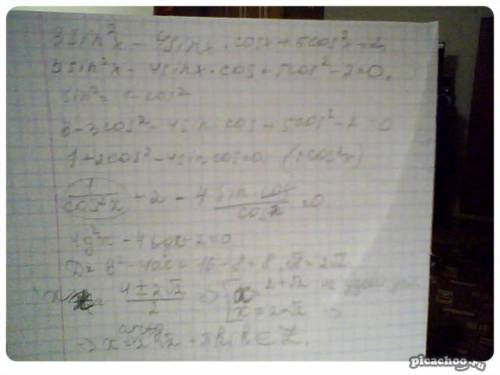 3sin²x - 4sinx·cosx + 5cos²x = 2
3sin²x - 4sinx·cos + 5cos² - 2 = 0.
sin² = 1 - cos²
3 - 3cos² - 4sin cos + 5cos² - 2 = 0
1 + 2cos² - 4sin cos = 0 (: cos²x)
1/cos²x - 2 - 4 sin cos/cos²x = 0
tg²x - 4tgx - 2 = 0
D = b² - 4ac = 16 - 8 = 8, √8 = 2√2
x = (4 ± 2√2)/2 ⇒ [x 2 + √2 не
x = 2 - √2 ⇒
⇒ x = arctg 2 - √2 + πk, k ∈ Z.
picachoo.ru